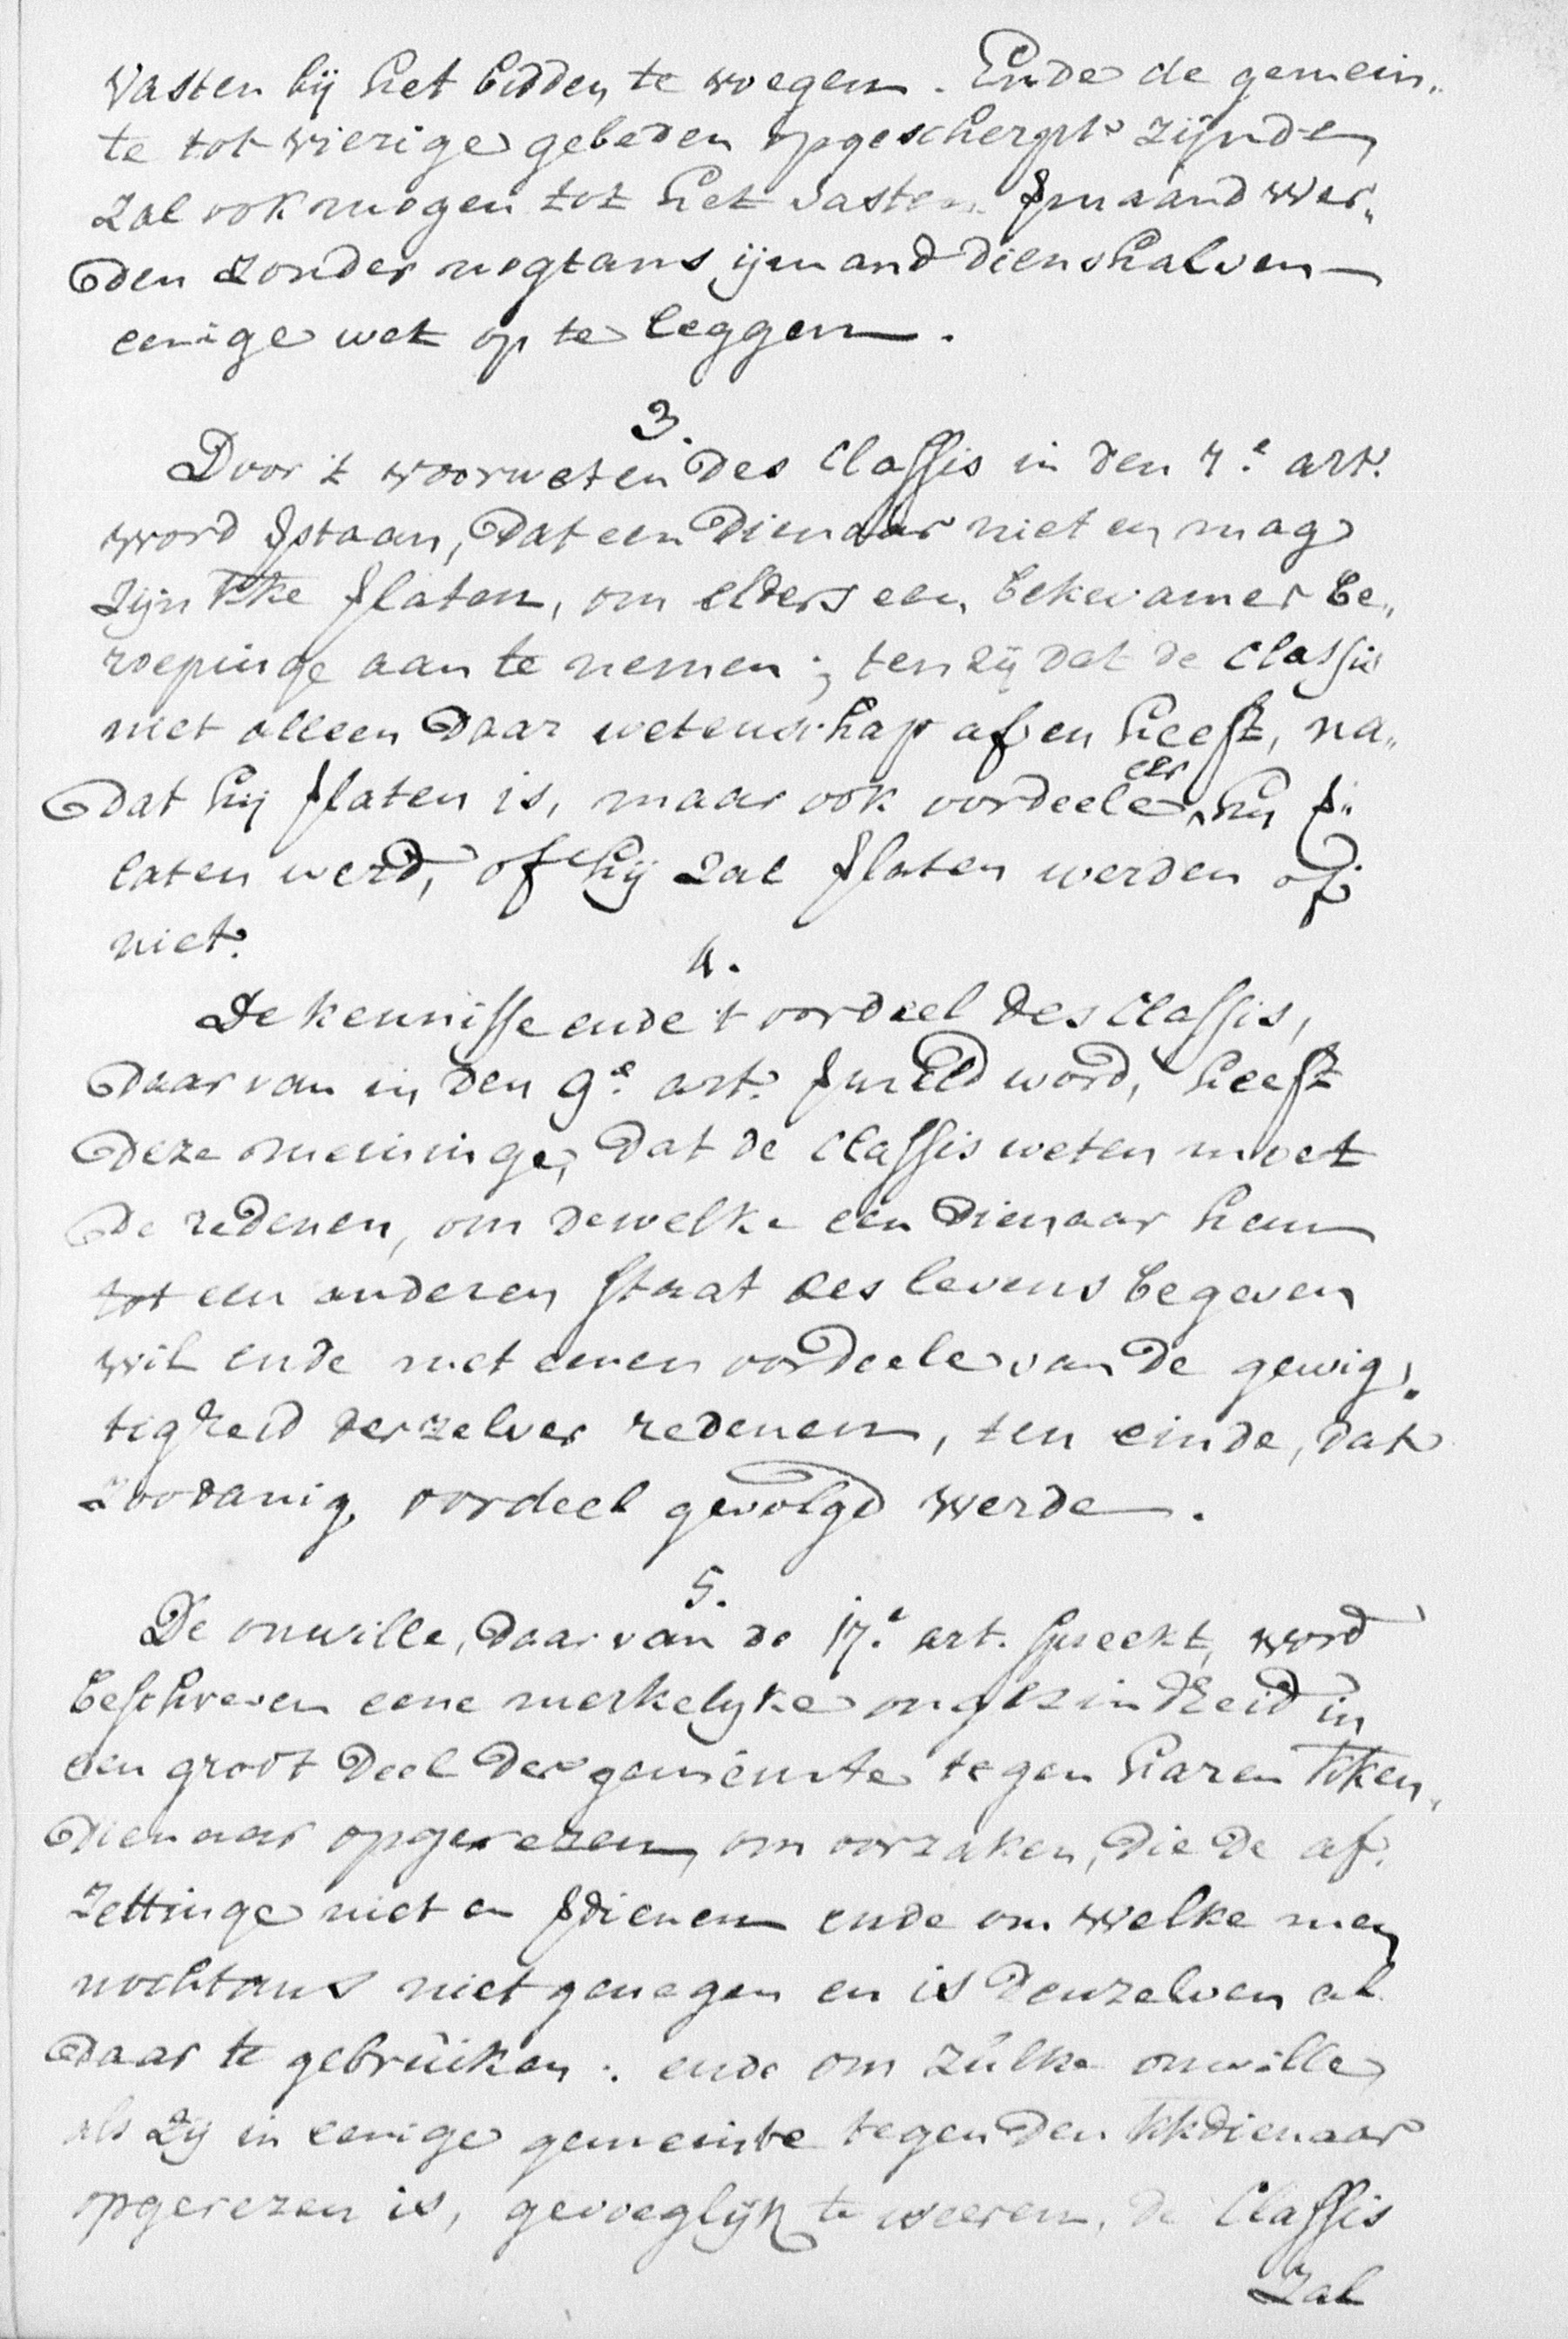 Vasten bij het bidden te voegen. Ende de gemein„
te tot vierige gebeden opgescherpt zijnde
zal ook mogen tot het vasten vmaand wer„
den zonder nogtans ijmand dienshalven
eenige wet op te leggen.
3.
Door 't voorweten des Classis in den 7e art.
word vstaan, dat een Dienaar niet en mag
zijn kke vlaten, om elders een bekwamer be„
roepinge aan te nemen; ten zij dat de Classis
niet alleen daar wetenschap af en heeft, na„
dat hij vlaten is, maar ook oordeele eer hij v„
laten werd, of hij zal vlaten werden of
niet.
4.
De kennisse ende 't oordeel des Classis,
daar van in den 9e art. vmeld word, heeft
deze meininge, dat de Classis weten moet
de redenen, om dewelke een Dienaar hem
tot een anderen staat des levens begeven
wil ende met eenen oordeele van de gewig„
tigheid derzelver redenen, ten einde, dat
zoodanig oordeel gevolgd werde.
5.
De onwille, daar van de 17e art. spreekt, word
beschreven eene merkelyke ongezindheid in
een groot deel der gemeinte tegen haren kken„
dienaar opgerezen, om oorzaken, die de af„
zettinge niet en vdienen ende om welke men
nochtans niet genegen en is denzelven al„
daar te gebruiken: ende om zulke onwille
als zij in eenige gemeinte tegen den kkdienaar
opgerezen is, gevoeglijk te weeren, de Classis
Zal